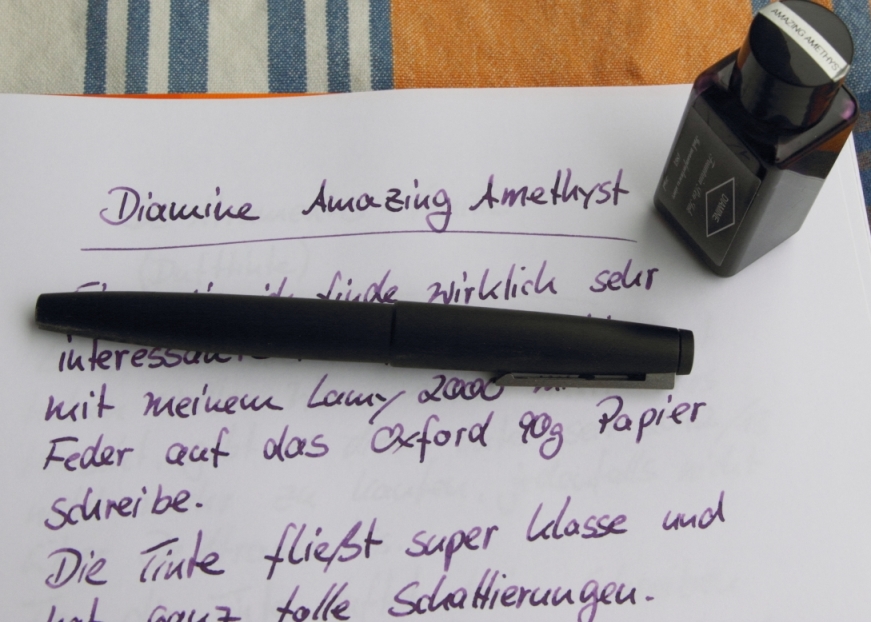 AMAZING AMETHYS
DIAMINE
Diamine Amazing Amethyst
finde wirklich sehr
mit meinem Lamy 2000
Feder auf das Oxford 90g Papier
schreibe.
Die Tinte fließt super klasse und
hat ganz tolle Schattierungen.